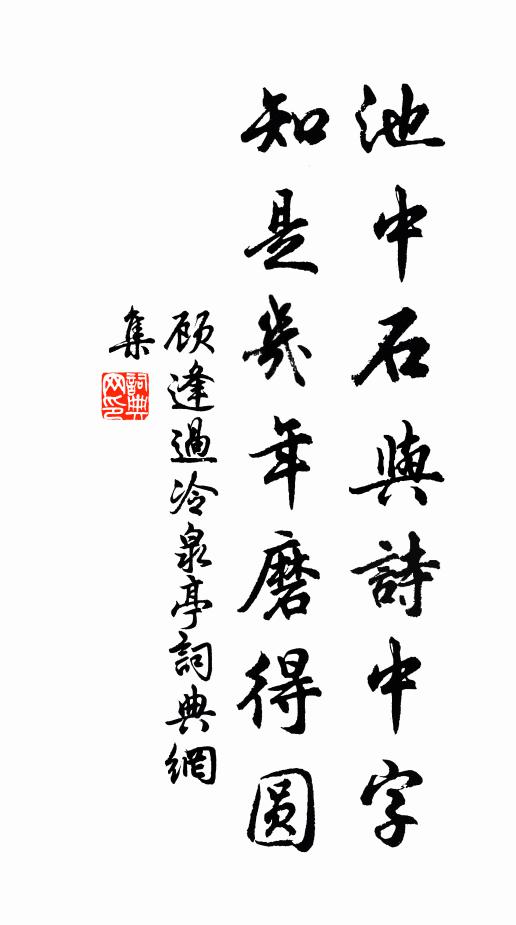 池中石與詩中字
知是幾年磨得圆
顾逢過冷泉亭詞典網
集
詞典网印